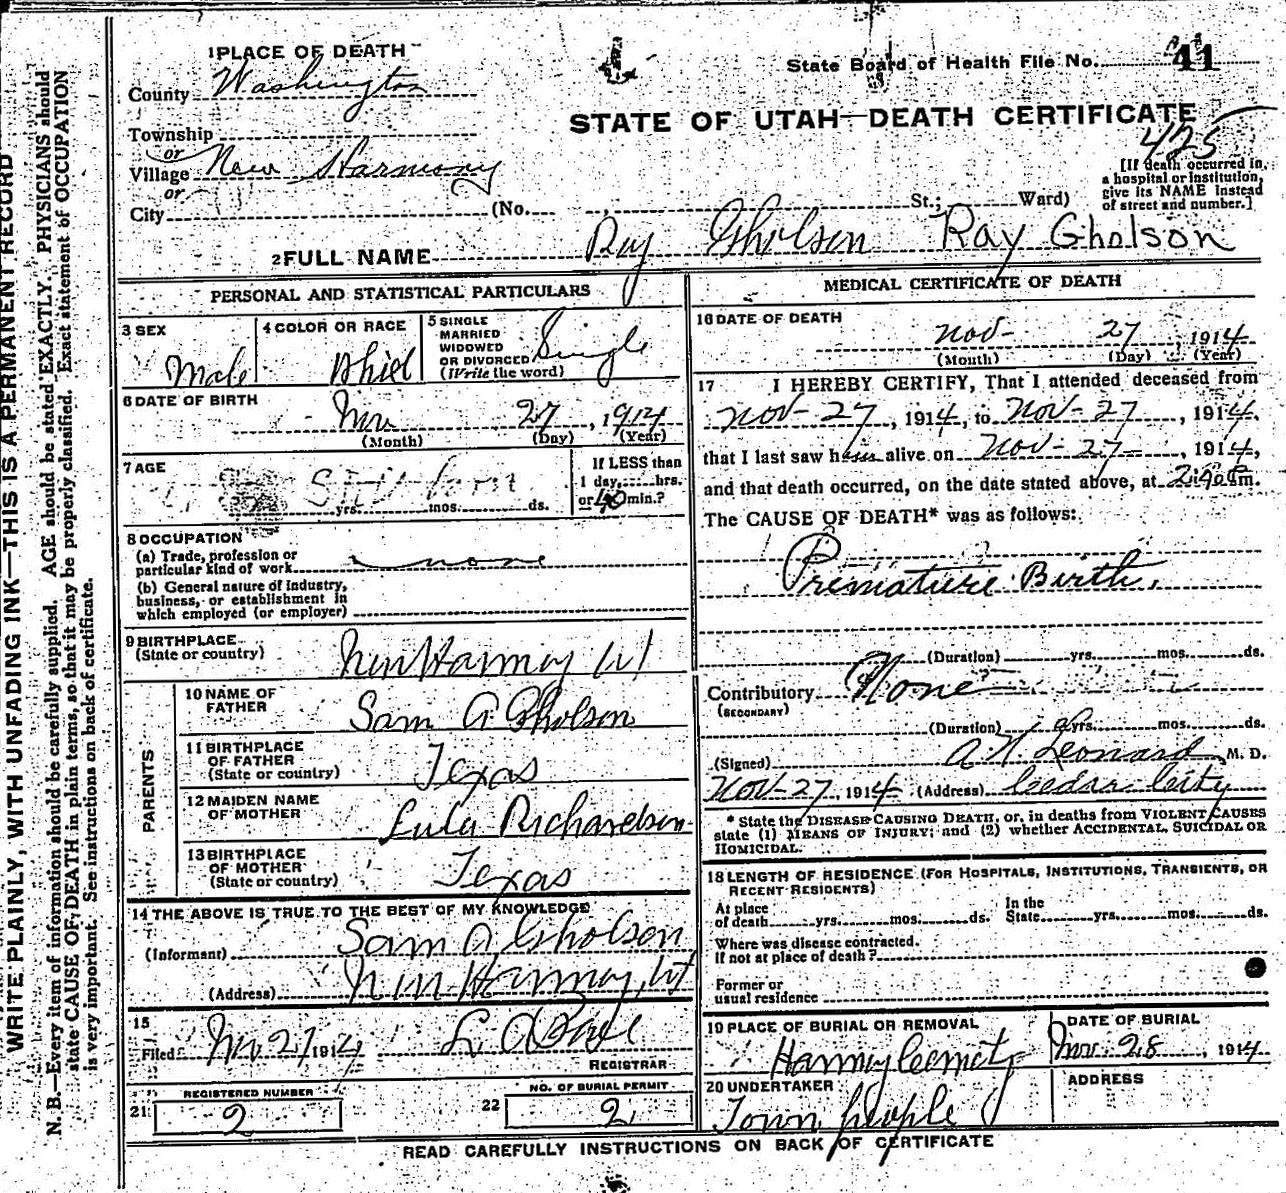 WRITE PLAINLY, WITH UNFADING INK—THIS IS A PERMANENT RECORD
N. B.—Every item of information should be carefully supplied. AGE should be stated EXACTLY. PHYSICIANS should
state CAUSE OF DEATH in plain terms, so that it may be properly classified. Exact statement of OCCUPATION
is very important. See instructions on back of certificate.
1 PLACE OF DEATH
State Board of Health File No. 41
County Washington
STATE OF UTAH—DEATH CERTIFICATE
425
Township
or
Village New Harmony
or
City (No. St.; Ward)
[If death occurred in
a hospital or institution,
give its NAME instead
of street and number.]
2 FULL NAME Ray Gholson Ray Gholson
PERSONAL AND STATISTICAL PARTICULARS
3 SEX
Male
4 COLOR OR RACE
5 SINGLE
MARRIED
WIDOWED
OR DIVORCED
(Write the word)
Single
6 DATE OF BIRTH
27, 1914
(Month) (Day) (Year)
7 AGE
Stillborn
yrs. mos. ds.
If LESS than
1 day, hrs.
or 40 min.?
8 OCCUPATION
(a) Trade, profession or
particular kind of work none
(b) General nature of industry,
business, or establishment in
which employed (or employer)
9 BIRTHPLACE
(State or country)
New Harmony Ut
PARENTS
10 NAME OF
FATHER
Sam A Gholson
11 BIRTHPLACE
OF FATHER
(State or country)
Texas
12 MAIDEN NAME
OF MOTHER
Lula Richardson
13 BIRTHPLACE
OF MOTHER
(State or country)
Texas
14 THE ABOVE IS TRUE TO THE BEST OF MY KNOWLEDGE
(Informant) Sam A Gholson
(Address) New Harmony, Ut
15
Filed Nov 27 1914
REGISTRAR
REGISTERED NUMBER
21 2
NO. OF BURIAL PERMIT
22 2
MEDICAL CERTIFICATE OF DEATH
16 DATE OF DEATH
Nov- 27, 1914
(Month) (Day) (Year)
17 I HEREBY CERTIFY, That I attended deceased from
Nov-27, 1914, to Nov-27, 1914,
that I last saw him alive on Nov-27, 1914,
and that death occurred, on the date stated above, at m.
The CAUSE OF DEATH* was as follows:
Premature Birth.
(Duration) yrs. mos. ds.
Contributory None
(SECONDARY)
(Duration) yrs. mos. ds.
(Signed) A. N. Leonard, M. D.
Nov-27, 1914 (Address) Cedar City
* State the DISEASE CAUSING DEATH, or, in deaths from VIOLENT CAUSES
state (1) MEANS OF INJURY; and (2) whether ACCIDENTAL, SUICIDAL OR
HOMICIDAL.
18 LENGTH OF RESIDENCE (FOR HOSPITALS, INSTITUTIONS, TRANSIENTS, OR
RECENT RESIDENTS)
At place
of death yrs. mos. ds.
In the
State yrs. mos. ds.
Where was disease contracted.
if not at place of death?
Former or
usual residence
19 PLACE OF BURIAL OR REMOVAL
Harmony Cemety
DATE OF BURIAL
Nov. 28, 1914
20 UNDERTAKER
Town people
ADDRESS
READ CAREFULLY INSTRUCTIONS ON BACK OF CERTIFICATE